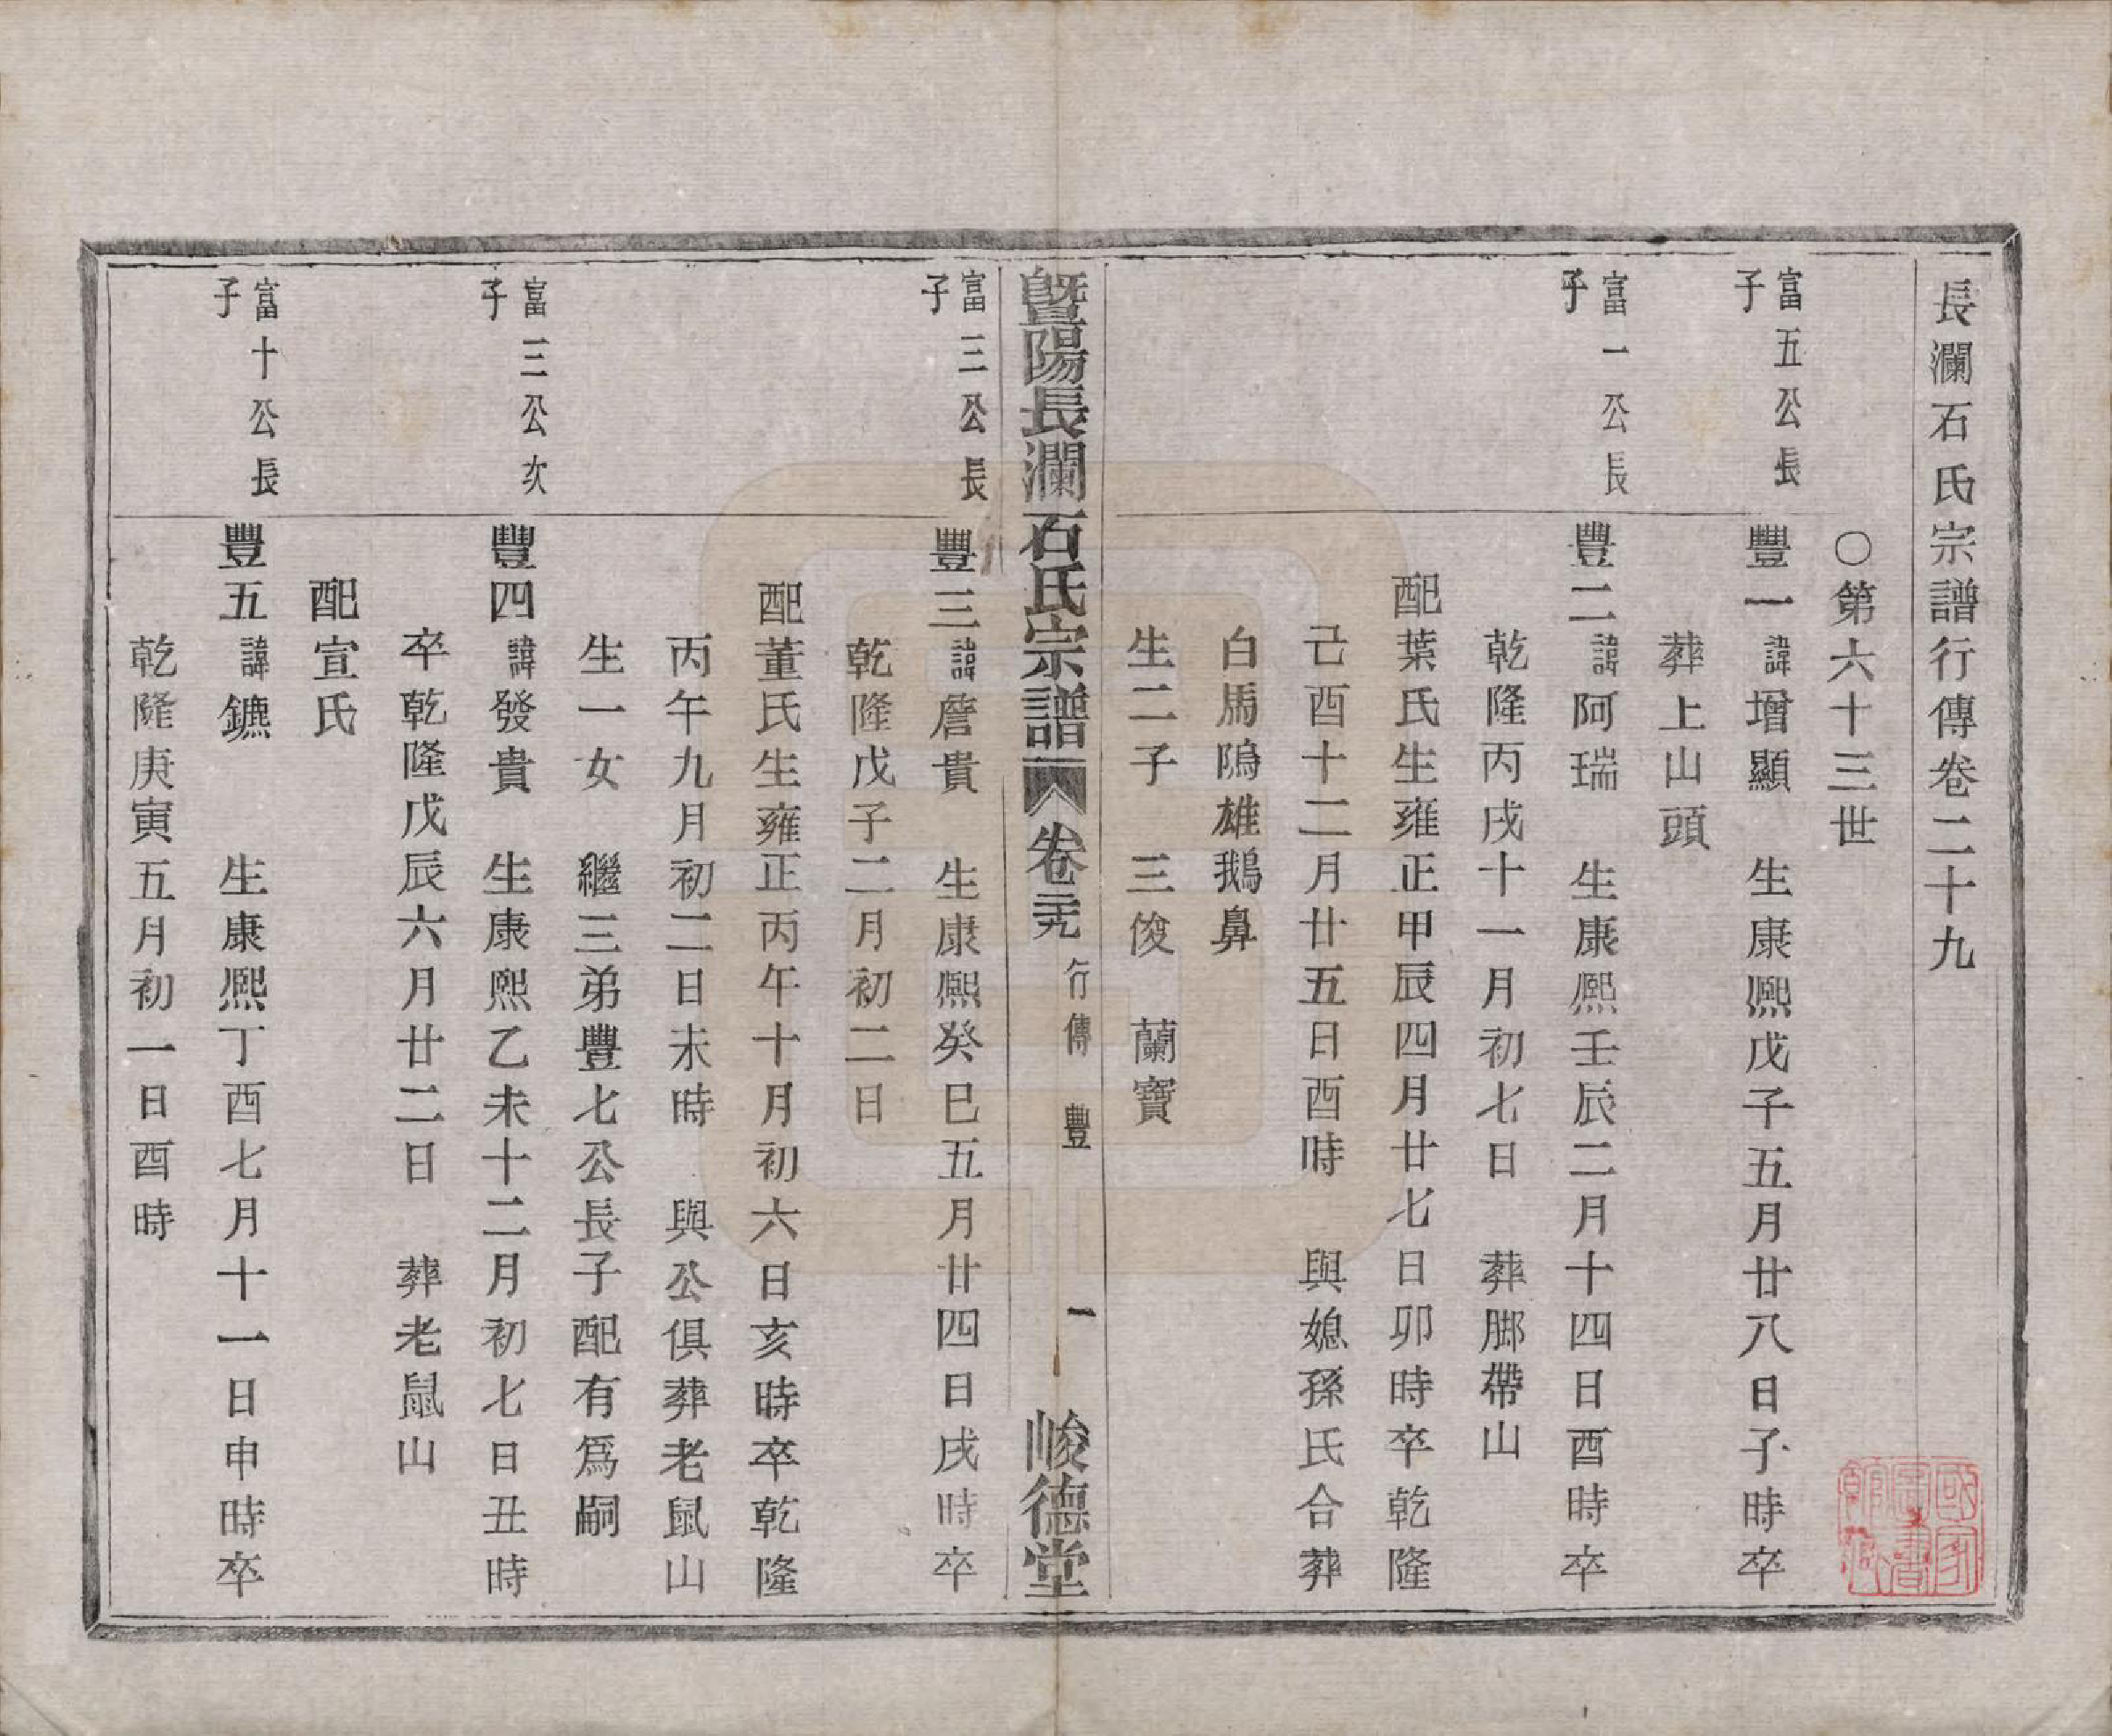 長瀾石氏宗譜行傳卷二十九
○第六十三世
富五公長子
豐一諱增顯 生康熙戊子五月廿八日子時卒
葬上山頭
富一公長子
豐二諱阿瑞 生康熙壬辰二月十四日酉時卒
乾隆丙戌十一月初七日 葬脚帶山
配葉氏生雍正甲辰四月廿七日卯時卒乾隆
己酉十二月廿五日酉時 與媳孫氏合葬
白馬隖雄鵝鼻
生二子 三俊 蘭寶
暨陽長瀾石氏宗譜 卷二十九 行傳 豐 一 峻德堂
富三公長子
豐三諱詹貴 生康熙癸巳五月廿四日戌時卒
乾隆戊子二月初二日
配董氏生雍正丙午十月初六日亥時卒乾隆
丙午九月初二日未時 與公俱葬老鼠山
生一女 繼三弟豐七公長子配有爲嗣
富三公次子
豐四諱發貴 生康熙乙未十二月初七日丑時
卒乾隆戊辰六月廿二日 葬老鼠山
配宣氏
富十公長子
豐五諱鑣 生康熙丁酉七月十一日申時卒
乾隆庚寅五月初一日酉時
國家圖書館藏